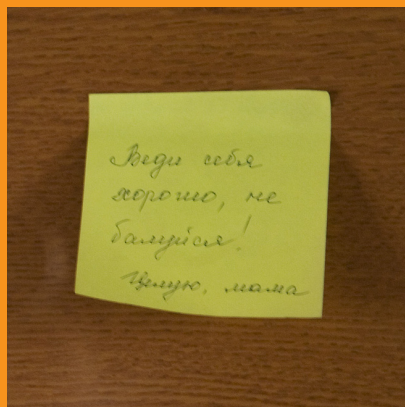 Веди себя
хорошо, не
балуйся!
Целую, мама